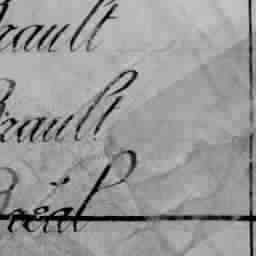 Brault
Brault
Bréal